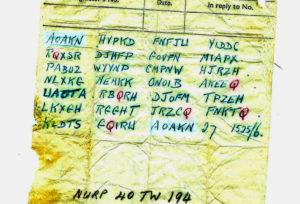 Date.
In reply to No.
AOAKN HVPKD FNFJU YIDDC
RQXSR DJHFP GOVFN MIAPX
PABUZ WYYNP CMPNW HJRZH
NLXKG MEMKK ONOIB AKEEQ
UAOTA RBQRH DJOFM TPZEH
LKXGH RGGHT JRZCQ FNKTQ
KLDTS GQIRU AOAKN 27 1525/6.
NURP 40 TW 194